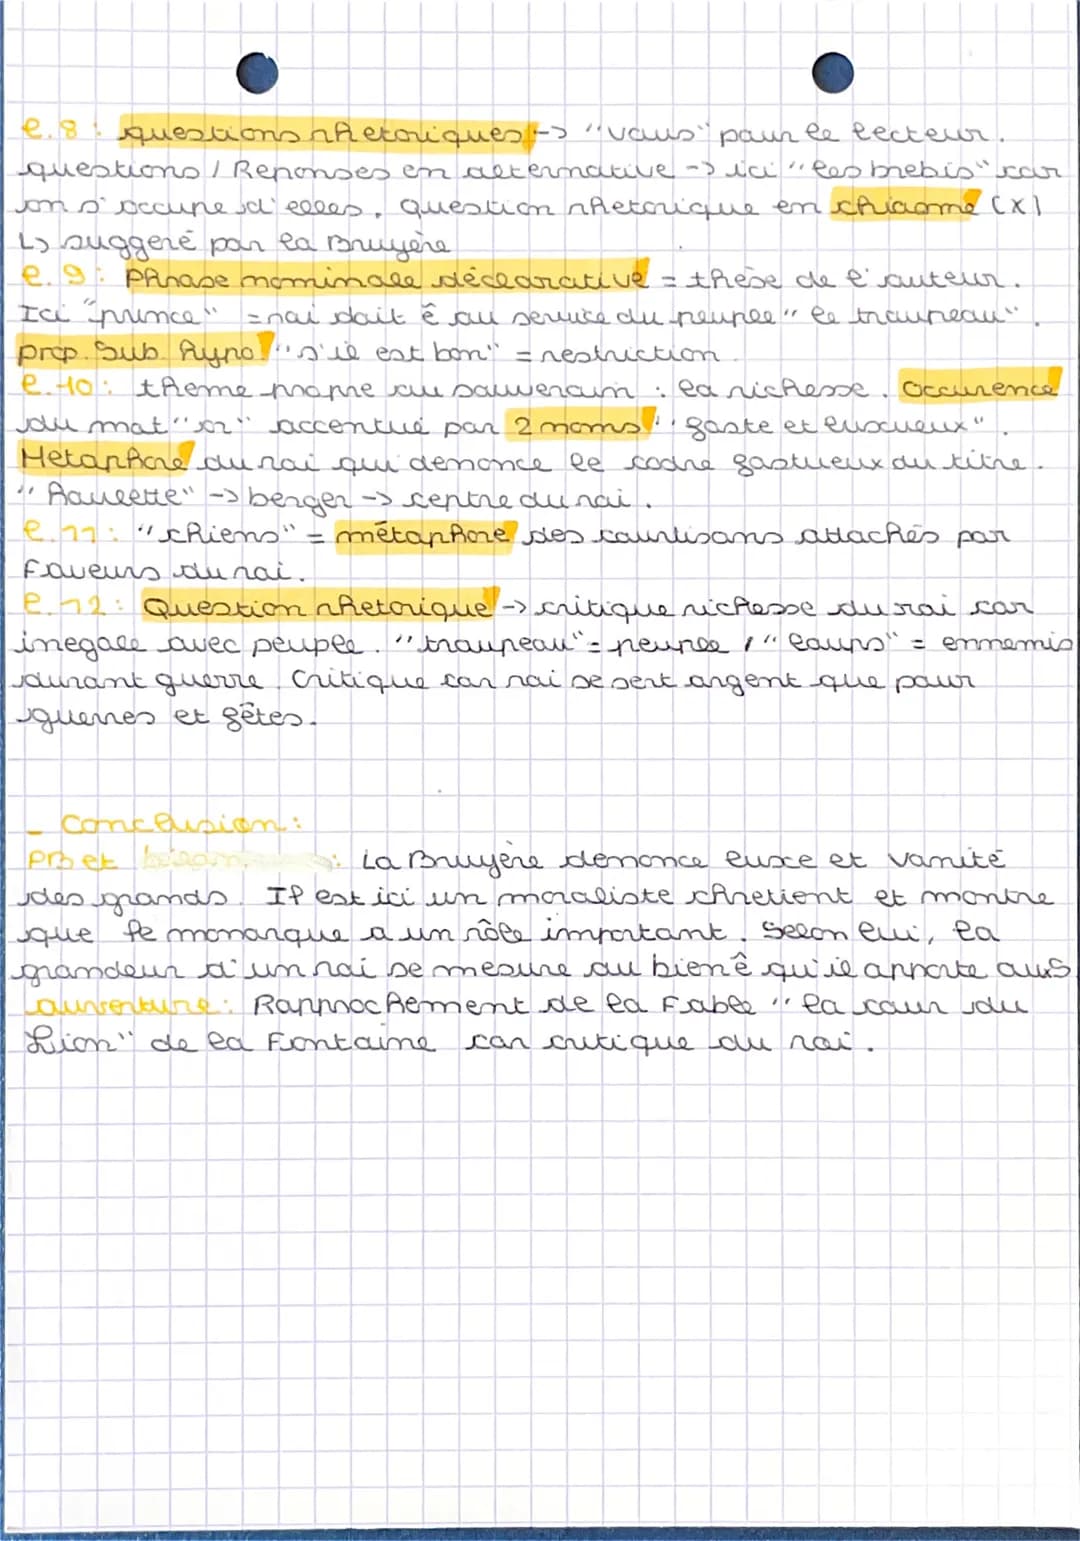 l.8 : questions rhetoriques -> "vous" pour le lecteur.
questions / Reponses en alternative -> ici "les brebis" car
on s'occupe d'elles. Question rhetorique en chiasme (X)
↳ suggeré par la Bruyère
l.9 : Phrase nominale déclarative = thèse de l'auteur.
Ici "prince" = roi doit ê au service du peuple "le troupeau".
prop. Sub. Hypo. "s'il est bon" = restriction.
l.10 : theme propre au souverain : la richesse. Occurence
du mot "or" accentué par 2 noms "faste et luxueux".
Metaphore du roi qui denonce le cadre fastueux du titre.
"Houlette" -> berger -> sceptre du roi.
l.11 : "chiens" = métaphore des courtisans attachés par
faveurs du roi.
l.12 : Question rhetorique -> critique richesse du roi car
inegale avec peuple. "troupeau" = peuple / "loups" = ennemis
durant guerre. Critique car roi se sert argent que pour
guerres et fêtes.
- Conclusion :
PB et : La Bruyère denonce luxe et vanité
des grands. Il est ici un moraliste chretient et montre
que le monarque a un rôle important. Selon lui, la
grandeur d'un roi se mesure au bien ê qu'il apporte aux S
ouverture : Rapprochement de la Fable "la cour du
Lion" de la Fontaine car critique du roi.